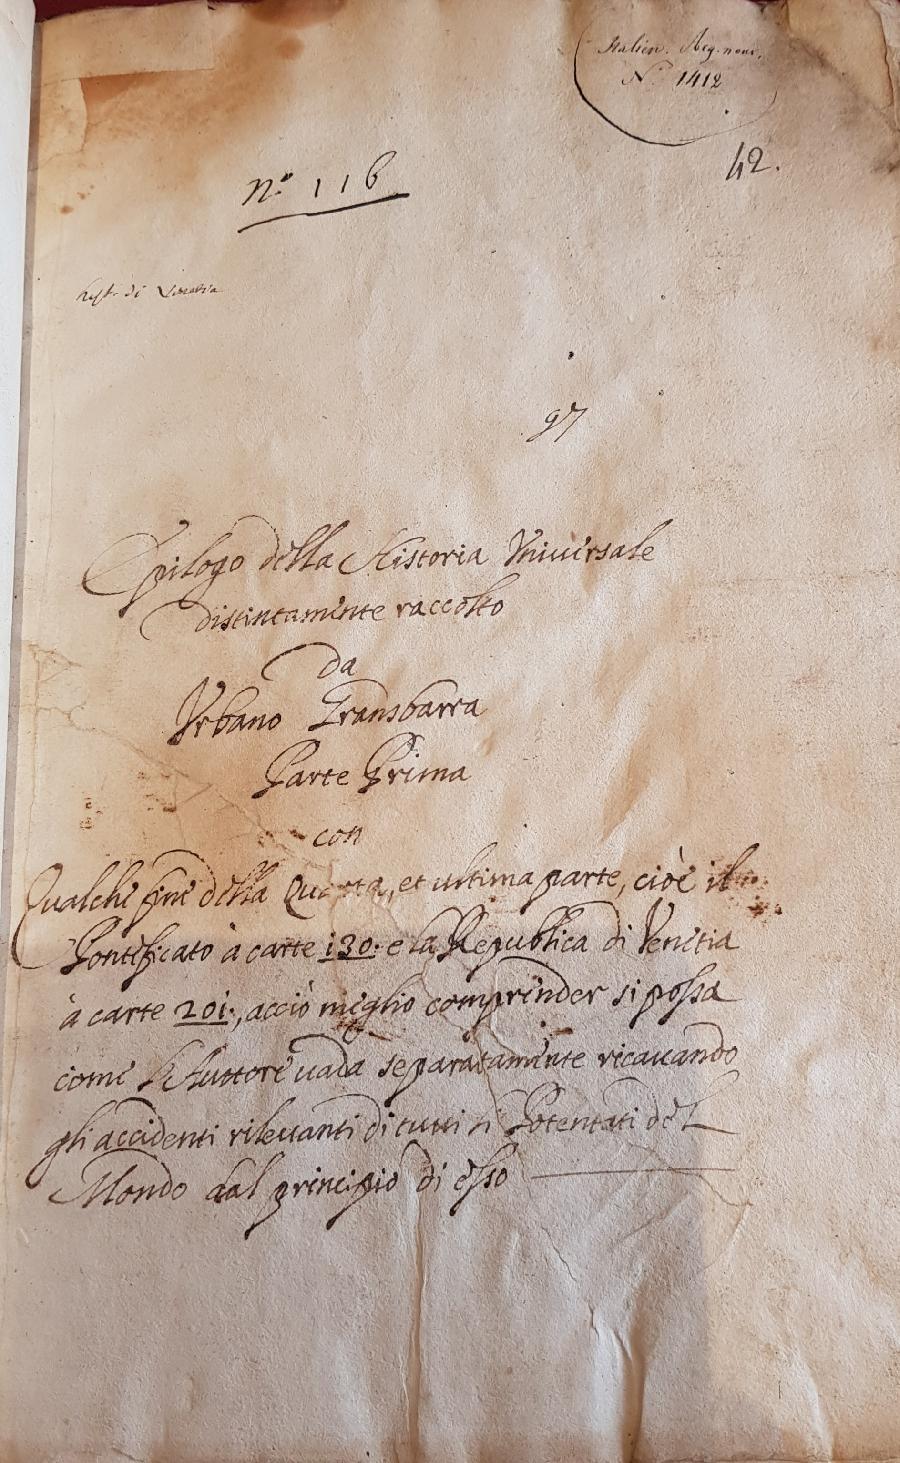 Italien. Acq. nouv.
N.° 1412
42.
n.° 116
hist. di Venetia
97
Epilogo della Historia Vniuersale
distintamente raccolto
da
Vrbano Transbarra
Parte Prima
con
Qualche fine della Quarta, et ultima parte, cioè il
Pontificato à carte 130: e la Republica di Venetia
à carte 201:, acciò meglio comprender si possa
come l'Auttore uada separatamente ricauando
gli accidenti rileuanti di tutti li Potentati del
Mondo dal principio di esso